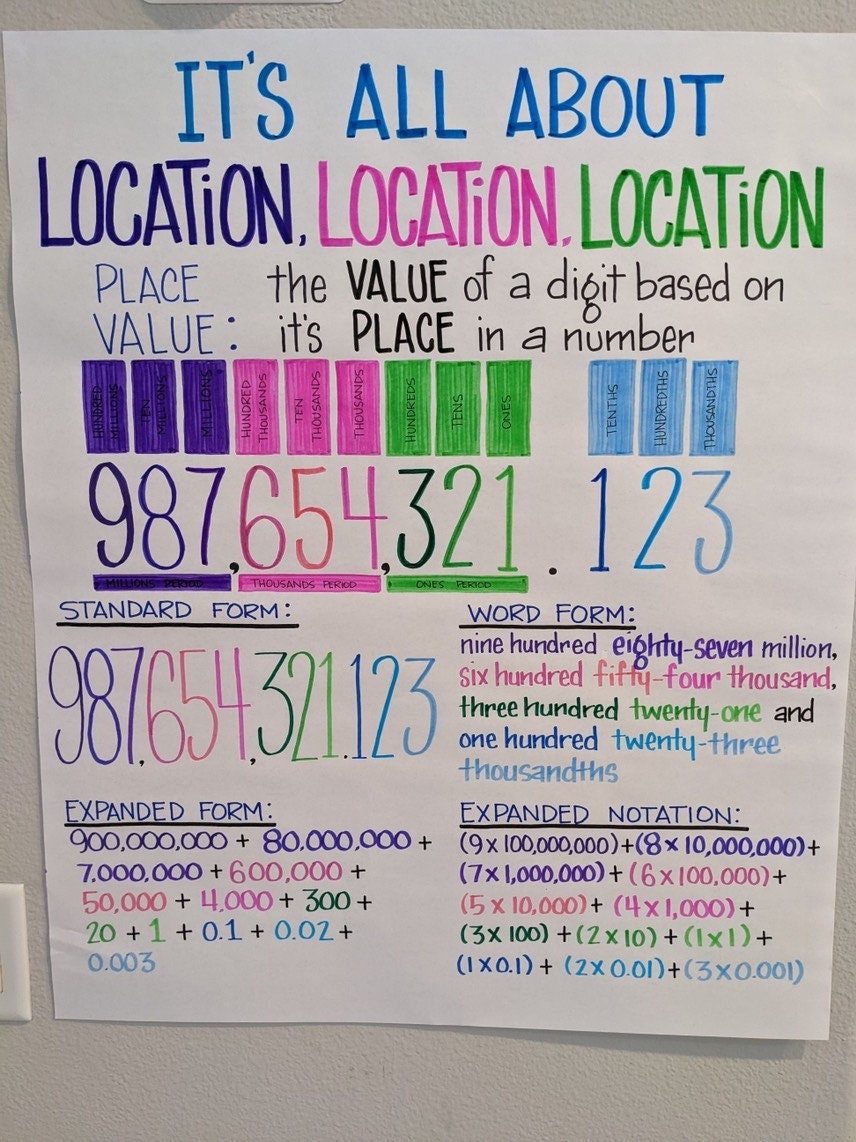 IT'S ALL ABOUT
LOCATiON, LOCATiON, LOCATiON
PLACE the VALUE of a digit based on
VALUE: it's PLACE in a number
HUNDRED MILLIONS
TEN MILLIONS
MILLIONS
HUNDRED THOUSANDS
TEN THOUSANDS
THOUSANDS
HUNDREDS
TENS
ONES
TENTHS
HUNDREDTHS
THOUSANDTHS
987,654,321.123
MILLIONS PERIOD THOUSANDS PERIOD ONES PERIOD
STANDARD FORM:
987,654,321.123
WORD FORM:
nine hundred eighty-seven million,
six hundred fifty-four thousand,
three hundred twenty-one and
one hundred twenty-three
thousandths
EXPANDED FORM:
900,000,000 + 80.000,000 +
7.000,000 + 600,000 +
50,000 + 4,000 + 300 +
20 + 1 + 0.1 + 0.02 +
0.003
EXPANDED NOTATION:
(9x100,000,000)+(8x10,000,000)+
(7x1,000,000)+(6x100,000)+
(5x10,000)+(4x1,000)+
(3x100)+(2x10)+(1x1)+
(1x0.1)+(2x0.01)+(3x0.001)